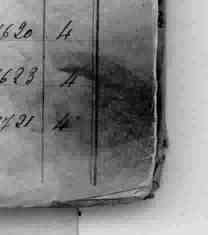 1620 4
1623 4
1721 4